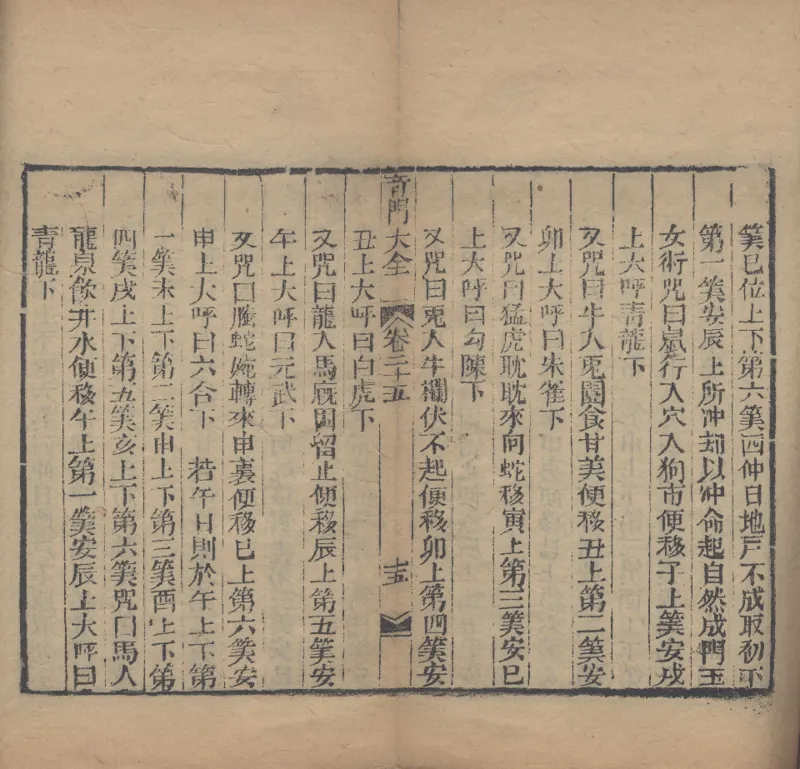 筭巳位上下第六筭四仲日地戸不成取初下
第一筭安辰上所冲却以冲命起自然成門玉
女術咒曰鼠行入穴入狗市便移子上筭安戌
上大呼青龍下
又咒曰牛入兎園食甘美便移丑上第二筭安
卯上大呼曰朱雀下
又咒曰猛虎耽耽來向蛇移寅上第三筭安巳
上大呼曰勾陳下
又咒曰兎入牛欄伏不起便移卯上第四筭安
奇門大全 卷二十五 十五
丑上大呼曰白虎下
又咒曰龍入馬廐因留止便移辰上第五筭安
午上大呼曰元武下
又咒曰騰蛇婉轉來申裏便移巳上第六筭安
申上大呼曰六合下 若午日則於午上下第
一筭未上下第二筭申上下第三筭酉上下第
四筭戌上下第五筭亥上下第六筭咒曰馬入
龍泉飲井水便移午上第一筭安辰上大呼曰
青龍下